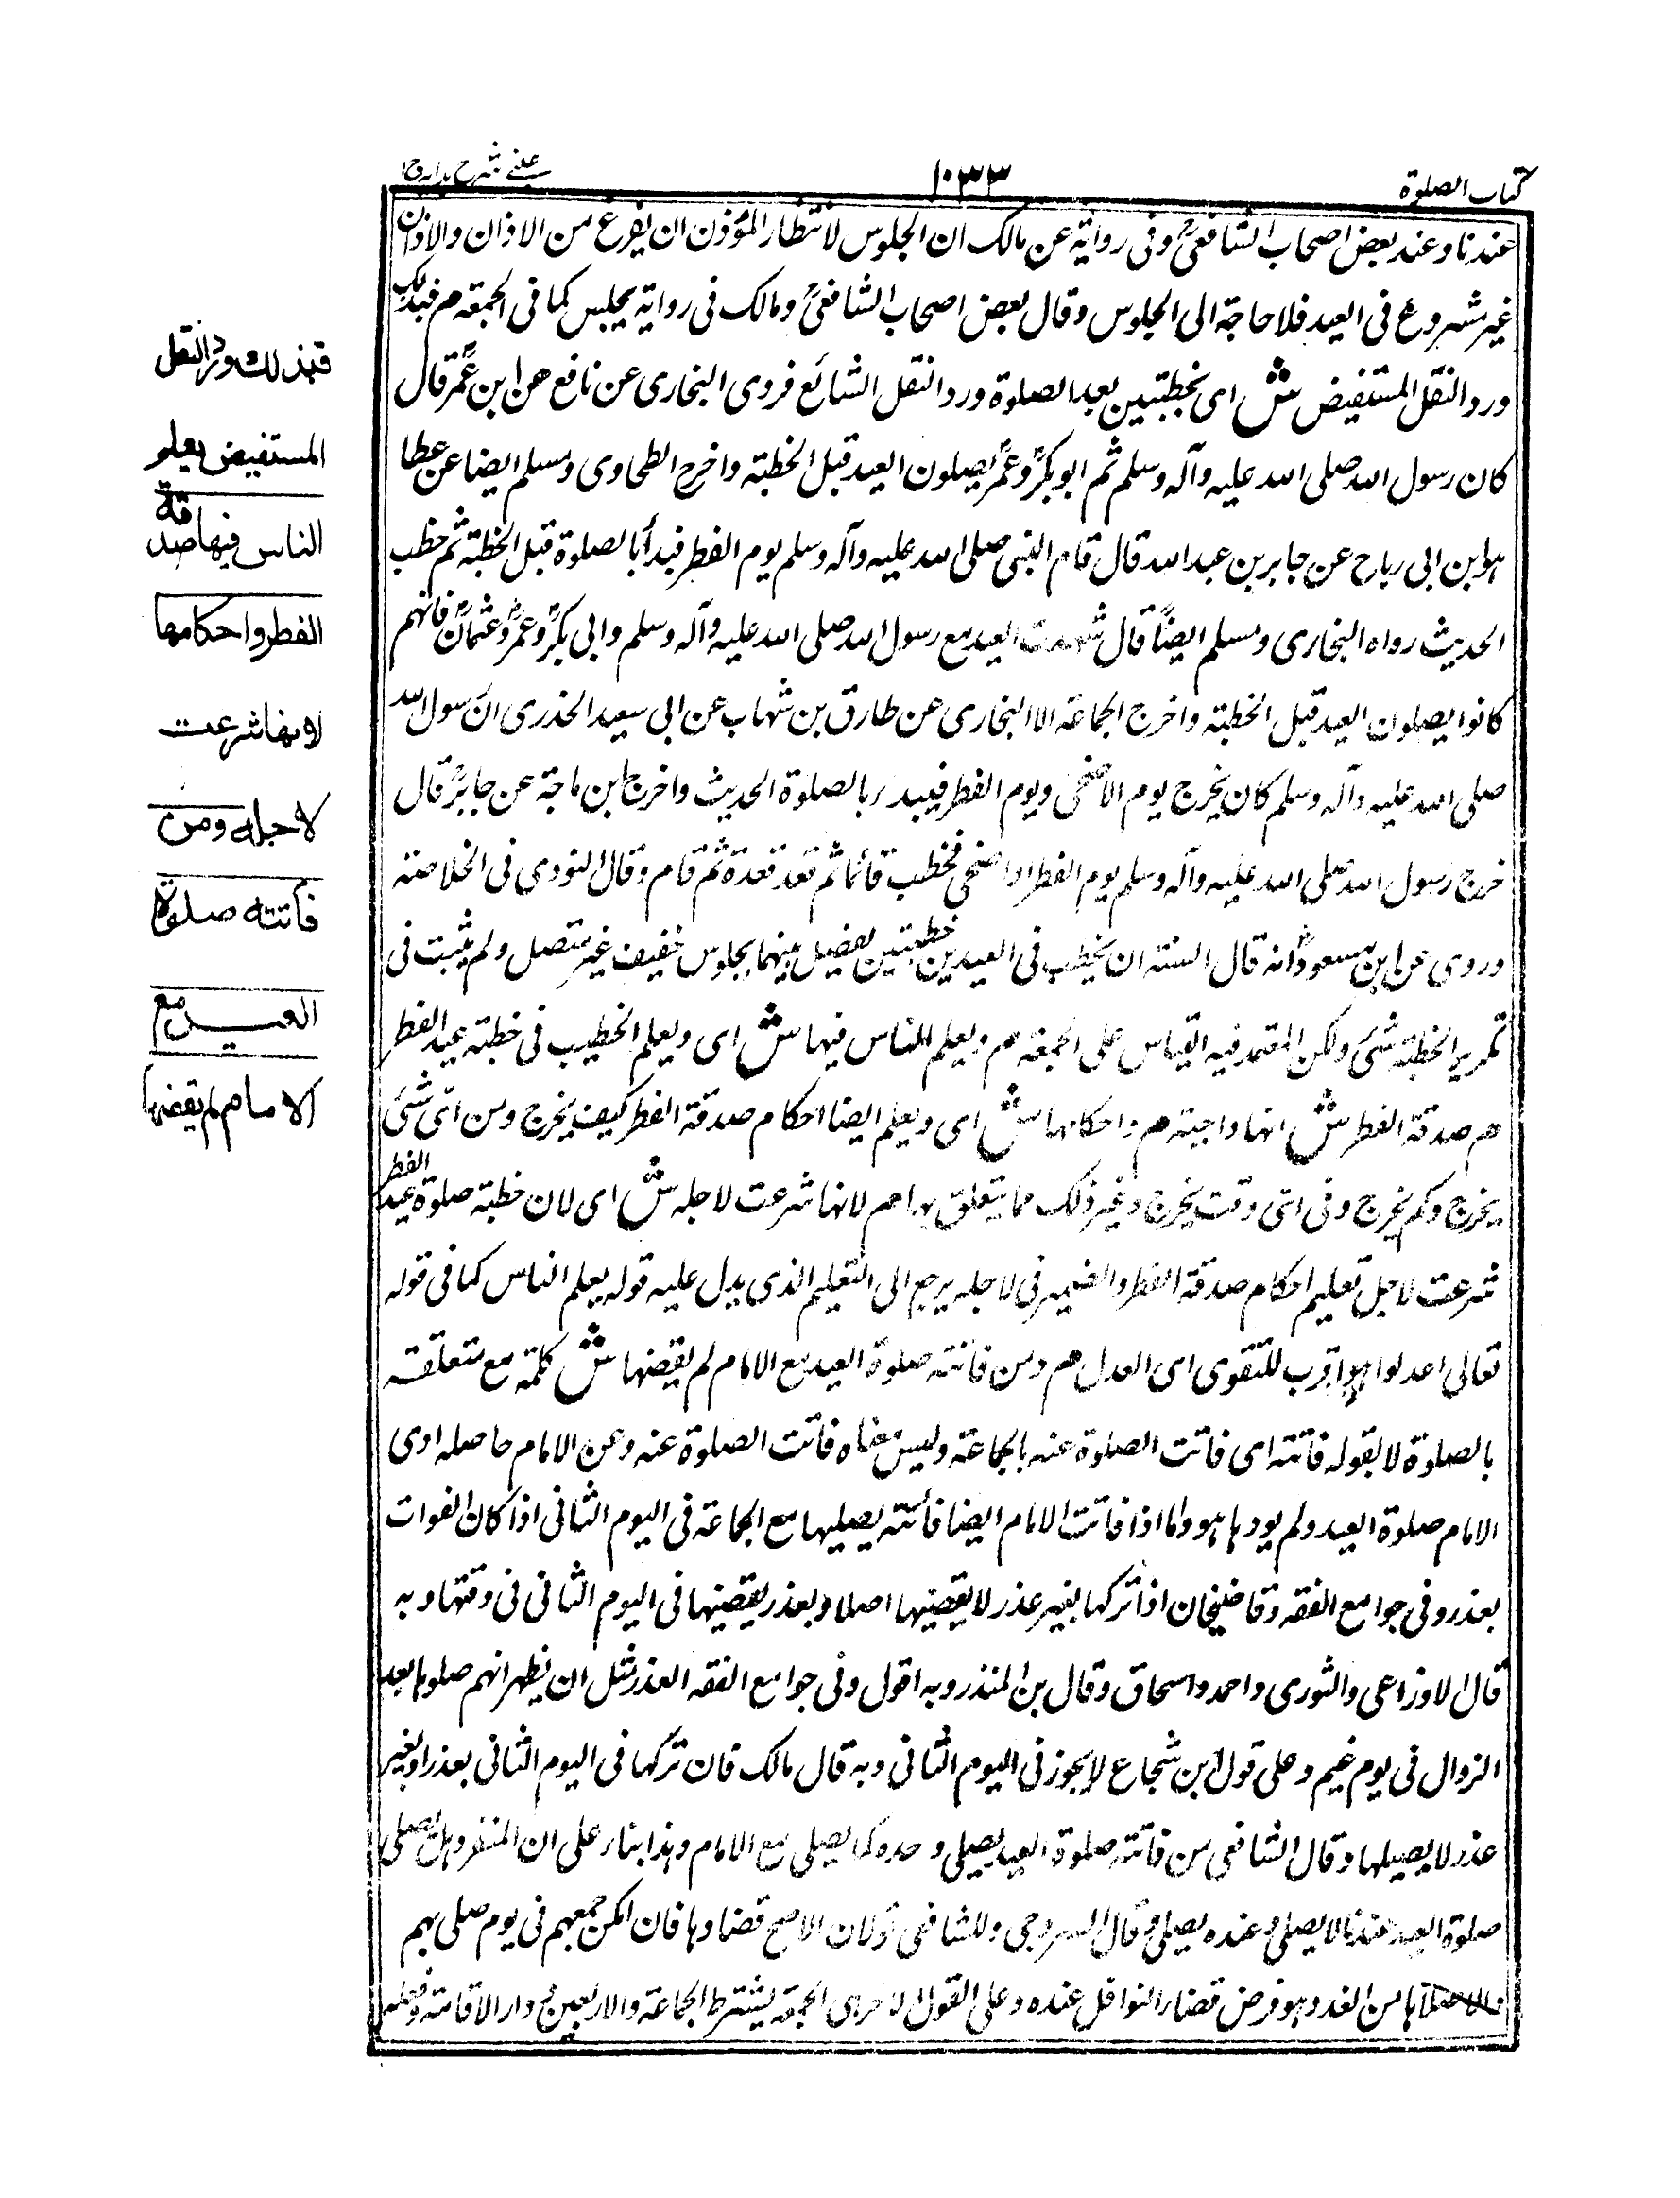 كتاب الصلوة
١٠٣٣
عينى شرح هدايه ج١
عندنا وعند بعض اصحاب الشافعىؒ وفى رواية عن مالك ان الجلوس لانتظار المؤذن ان يفرغ من الاذان والاذان
غير مشروع فى العيد فلا حاجة الى الجلوس وقال بعض اصحاب الشافعىؒ ومالك فى رواية يجلس كما فى الجمعة م فبذلك
ورد النقل المستفيض ش اى بخطبتين بعد الصلوة ورد النقل الشائع فروى البخارى عن نافع عن ابن عمرؓ قال
كان رسول الله صلى الله عليه وآله وسلم ثم ابو بكرؓ وعمرؓ يصلون العيد قبل الخطبة واخرج الطحاوى ومسلم ايضا عن عطا
هو ابن ابى رباح عن جابر بن عبد الله قال قام النبى صلى الله عليه وآله وسلم يوم الفطر فبدأ بالصلوة قبل الخطبة ثم خطب
الحديث رواه البخارى ومسلم ايضاً قال شهدت العيد مع رسول الله صلى الله عليه وآله وسلم وابى بكرؓ وعمرؓ وعثمانؓ فانهم
كانوا يصلون العيد قبل الخطبة واخرج الجماعة الا البخارى عن طارق بن شهاب عن ابى سعيد الخدرى ان رسول الله
صلى الله عليه وآله وسلم كان يخرج يوم الاضحى ويوم الفطر فيبدء بالصلوة الحديث واخرج ابن ماجة عن جابرؓ قال
خرج رسول الله صلى الله عليه وآله وسلم يوم الفطر او اضحى فخطب قائما ثم قعد قعدة ثم قام وقال النووى فى الخلاصة
وروى عن ابن مسعودؓ انه قال السنة ان يخطب فى العيدين خطبتين يفصل بينهما بجلوس خفيف غير متصل ولم يثبت فى
تكرير الخطبة شئ ولكن المعتمد فيه القياس على الجمعة م ويعلم الناس فيها ش اى ويعلم الخطيب فى خطبة عيد الفطر
م صدقة الفطر ش انها واجبة م واحكامها ش اى ويعلم ايضا احكام صدقة الفطر كيف يخرج ومن اىّ شئ
يخرج وكم يخرج وفى اىّ وقت يخرج وغير ذلك مما يتعلق بها م لانها شرعت لاجله ش اى لان خطبة صلوة عيد الفطر
شرعت لاجل تعليم احكام صدقة الفطر والضمير فى لاجله يرجع الى التعليم الذى يدل عليه قوله يعلم الناس كما فى قوله
تعالى اعدلوا هو اقرب للتقوى اى العدل م ومن فاتته صلوة العيد مع الامام لم يقضها ش كلمة مع متعلقة
بالصلوة لا بقوله فاتته اى فاتت الصلوة عنه بالجماعة وليس معناه فاتت الصلوة عنه وعن الامام حاصله ادى
الامام صلوة العيد ولم يودها هو واما اذا فاتت الامام ايضا فاتته يصليها مع الجماعة فى اليوم الثانى اذا كان الفوات
بعذر وفى جوامع الفقه وقاضيخان اذا تركها بغير عذر لا يقضيها اصلا وبعذر يقضيها فى اليوم الثانى فى وقتها وبه
قال الاوزاعى والثورى واحمد واسحاق وقال بن المنذر وبه اقول وفى جوامع الفقه العذر مثل ان يظهر انهم صلوها بعد
الزوال فى يوم غيم وعلى قول ابن شجاع لا يجوز فى اليوم الثانى وبه قال مالك فان تركها فى اليوم الثانى بعذر او بغير
عذر لا يصليها وقال الشافعى من فاتته صلوة العيد يصلى وحده كما يصلى مع الامام وهذا بناء على ان المنفرد هل يصلى
صلوة العيد عندنا لا يصلى وعنده يصلى وقال السروجى وللشافعى قولان الاصح قضاوها فان امكن جمعهم فى يوم صلى بهم
والا صلاها من الغد وهو فرض قضاء النوافل عنده وعلى القول الاخر هى الجمعة يشترط الجماعة والاربعين ودار الاقامة
فبذلك ورد النقل
المستفيض يعلم
الناس فيها صدقة
الفطر واحكامها
لانها شرعت
لاجله ومن
فاتته صلوة
العيد مع
الامام لم يقضها